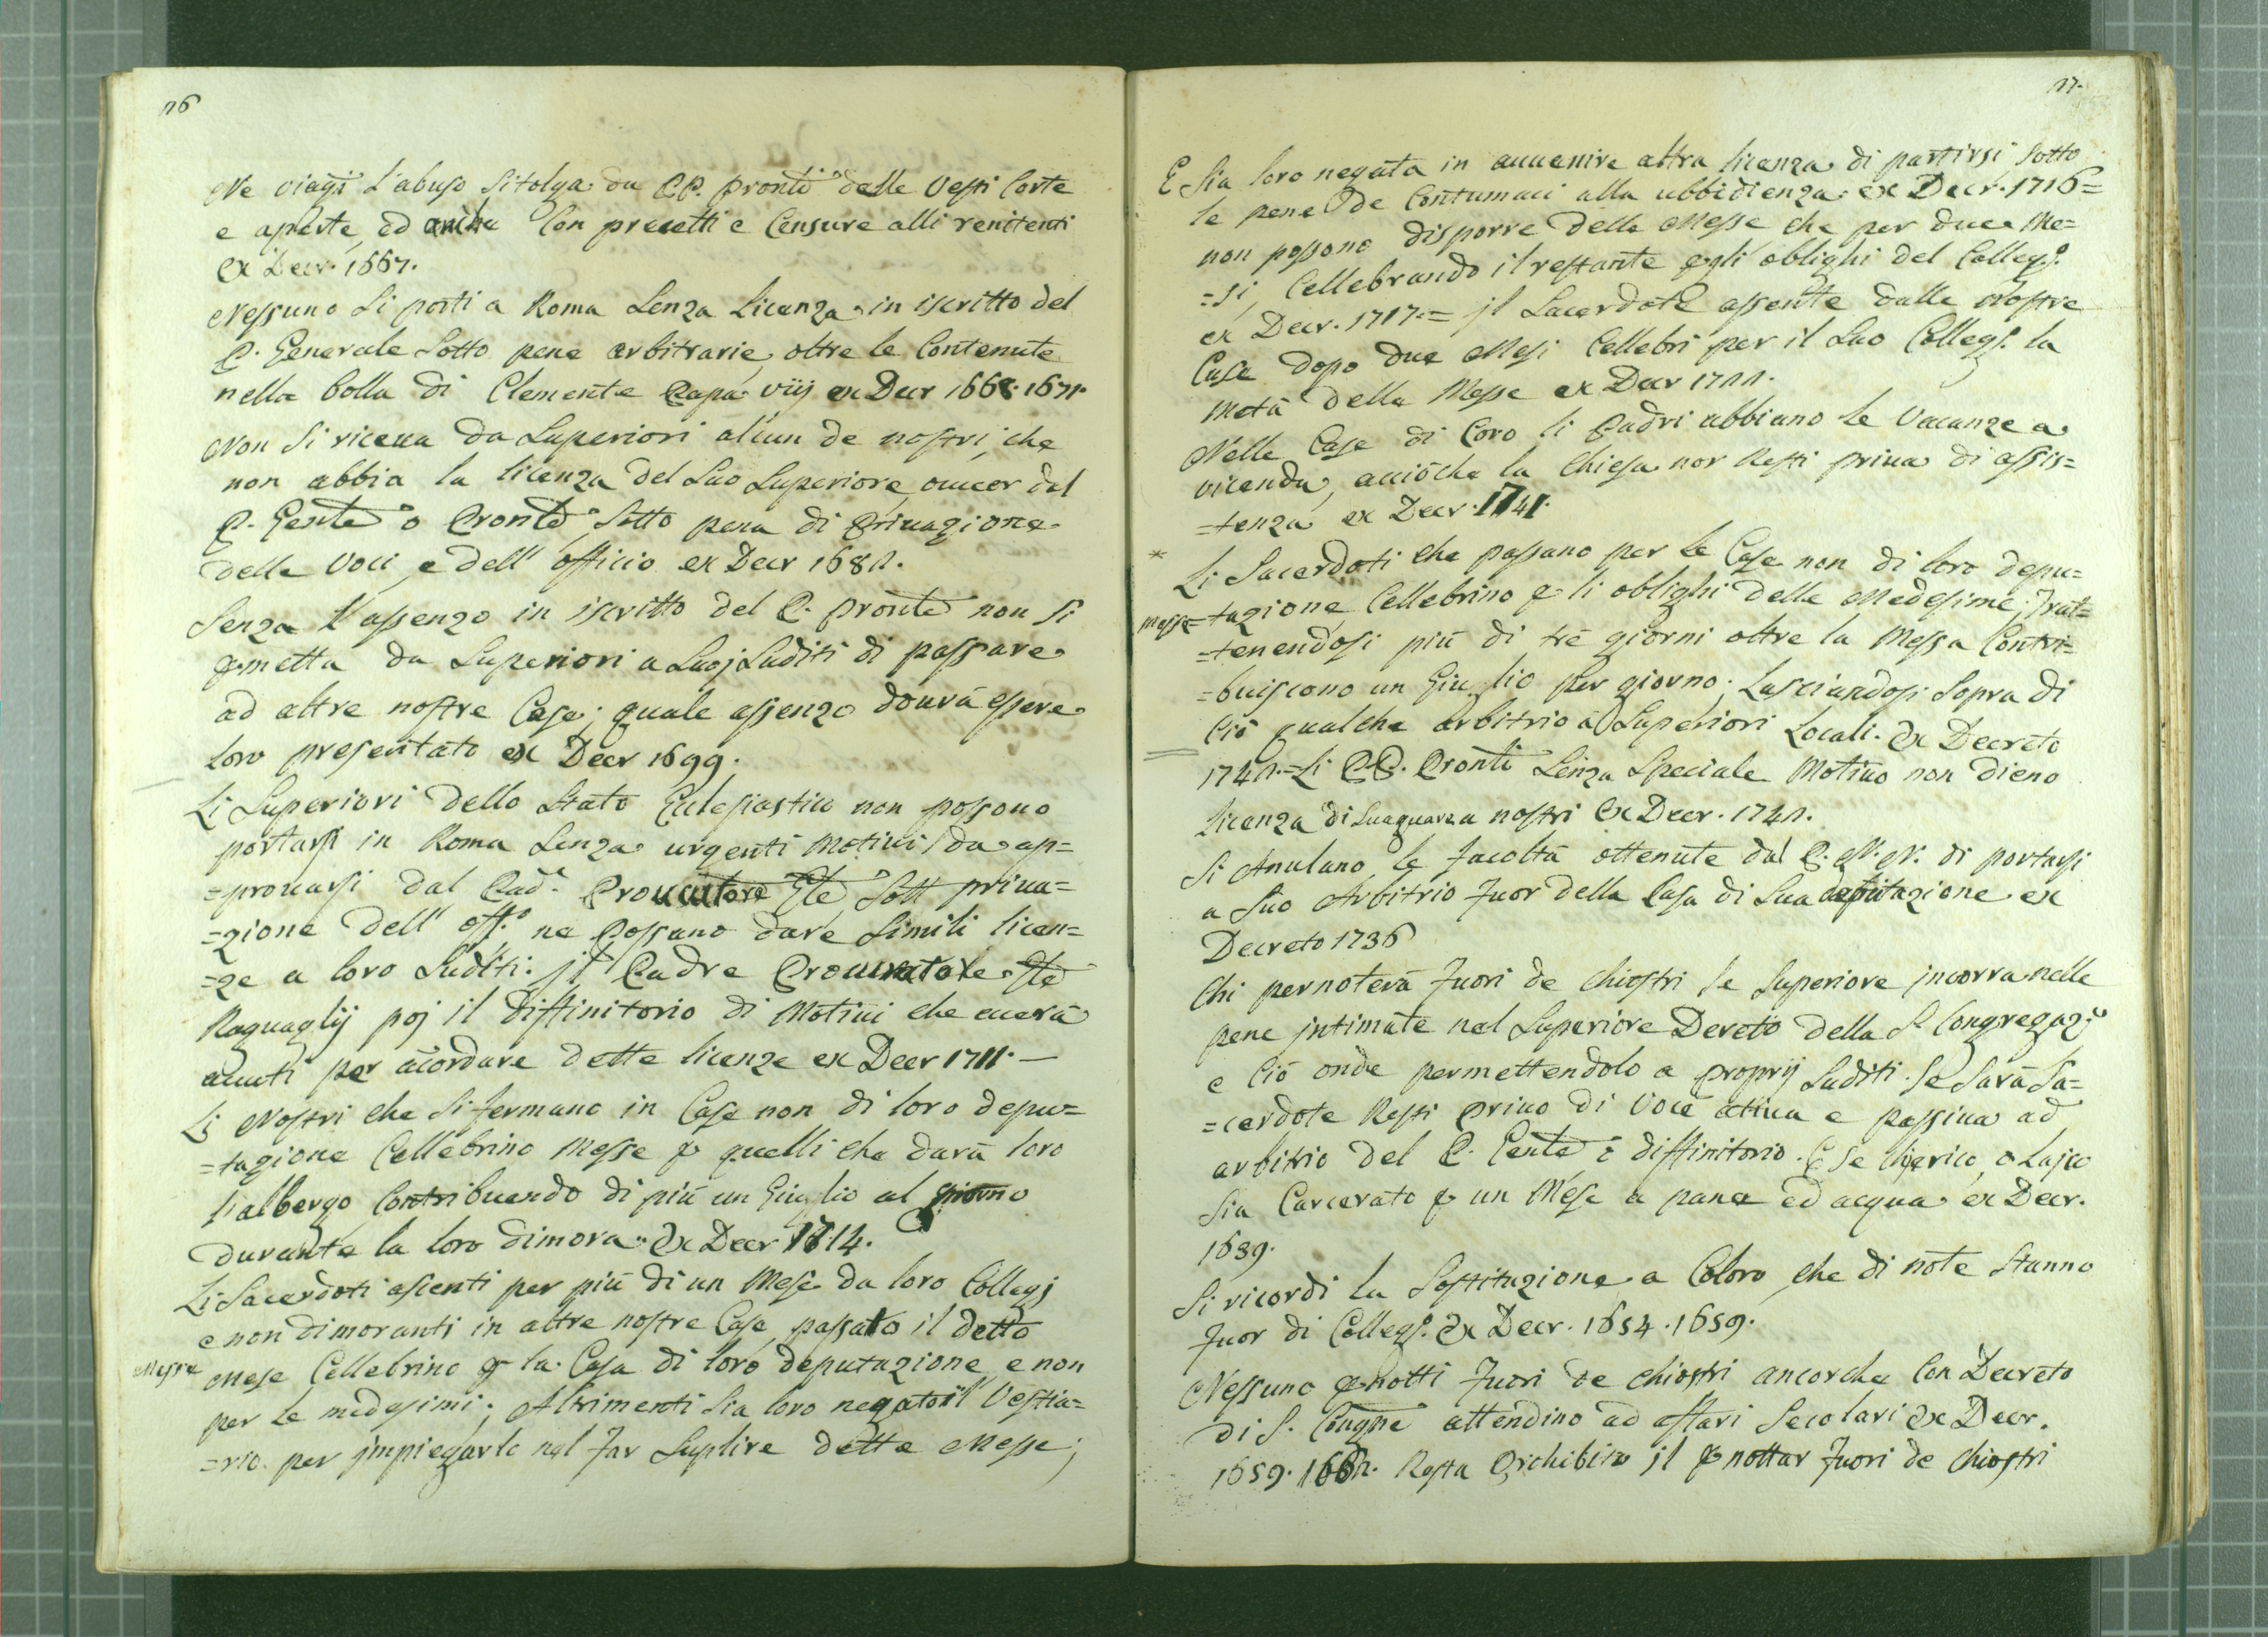 26
Ne viagi l'abuso si tolga da PP. Pronti delle Vesti Corte
e aperte, ed anche Con precetti e Censure alli renitenti
ex Decr. 1667.
Nessuno si porti a Roma senza licenza in iscritto del
P. Generale sotto pene arbitrarie, oltre le Contenute
nella bolla di Clemente Papa viij ex Decr 1668. 1671.
Non si riceva da Superiori alcun de nostri, che
non abbia la licenza del suo Superiore, ovver dal
P. Gente o Pronte sotto pena di Privazione
delle Voci, e dell' officio ex Decr 1682.
Senza l'assenzo in iscritto del P. Pronte non si
pmetta da Superiori a suoj suditi di passare
ad altre nostre Case; quale assenzo dovrà essere
loro presentato ex Decr 1699.
Li Superiori dello Stato Eclesiastico non possono
portarsi in Roma senza urgenti Motivi da ap=
=provarsi dal Pad.e Procuratore Gle sott priva=
=zione dell' off.o ne Possano dare simili licen=
=ze a loro suditi: jl Padre Procuratore Gle
Raguaglij poj il Diffinitorio di Motivi che averà
avuti per acordare dette licenze ex Decr 1711.
Li Nostri che si fermano in Case non di loro depu=
=tazione Cellebrino Messe p quelli che darà loro
l'albergo Contribuendo di più un Giuglio al giorno
durante la loro dimora. Ex Decr 1714.
Li Sacerdoti asenti per più di un Mese da loro Collegj
e non dimoranti in altre nostre Case, passato il detto
Messe
Mese Cellebrino p la Casa di loro deputazione, e non
per le medesimi; Altrimenti sia loro negato il Vestia=
=rio. per jmpiegarlo nel far suplire dette Messe;
27.
E sia loro negata in avvenire altra licenza di partirsi sotto
le pene de Contumaci alla ubbidienza: ex Decr. 1716=
non possono disporre delle Messe che per due Me=
=si, Cellebrando il restante p gli oblighi del Colleg.o
ex Decr. 1717.= jl Sacerdote assente dalle Nostre
Case dopo due Mesi Cellebri per il suo Colleg.o la
metà della Messe ex Decr 1722.
Nelle Case di Coro li Padri abbiano le Vacanze a
vicenda, acciòche la Chiesa non Resti priva di assis=
=tenza ex Decr. 1741.
* Li Sacerdoti che passano per le Case non di loro depu=
Messe =tazione Cellebrino p li oblighi delle Medesime. Trat=
=tenendosi più di trè giorni oltre la Messa Contri=
=buiscono un Giuglio per giorno; Lasciandosi sopra di
ciò qualche arbitrio à Superiori Locali. Ex Decreto
1742.=Li PP. Pronti senza speciale Motivo non dieno
licenza di a nostri Ex Decr. 1742.
Si Anulano le facoltà ottenute dal P. N. N. di portarsi
a suo Arbitrio fuor della Casa di sua deputazione ex
Decreto 1736
Chi pernoterà fuori de Chiostri se Superiore jncorra nelle
pene jntimate nel Superiore Dereto della S. Congregaz.e
e ciò onde permettendolo a proprij suditi. Se sarà Sa=
=cerdote Resti privo di Voce ativa e passiva ad
arbitrio del P. Gente o diffinitorio. E se Chierico, o Lajco
sia Carcerato p un Mese a pane ed acqua ex Decr.
1639.
Si ricordi la Sostituzione a Coloro, che di note stanno
fuor di Colleg.o Ex Decr. 1654. 1659.
Nessuno pnotti fuori de Chiostri ancorche Con Decreto
di S. Congne attendino ad affari secolari Ex Decr.
1659. 1662. Resta Prohibito jl pnottar fuori de Chiostri